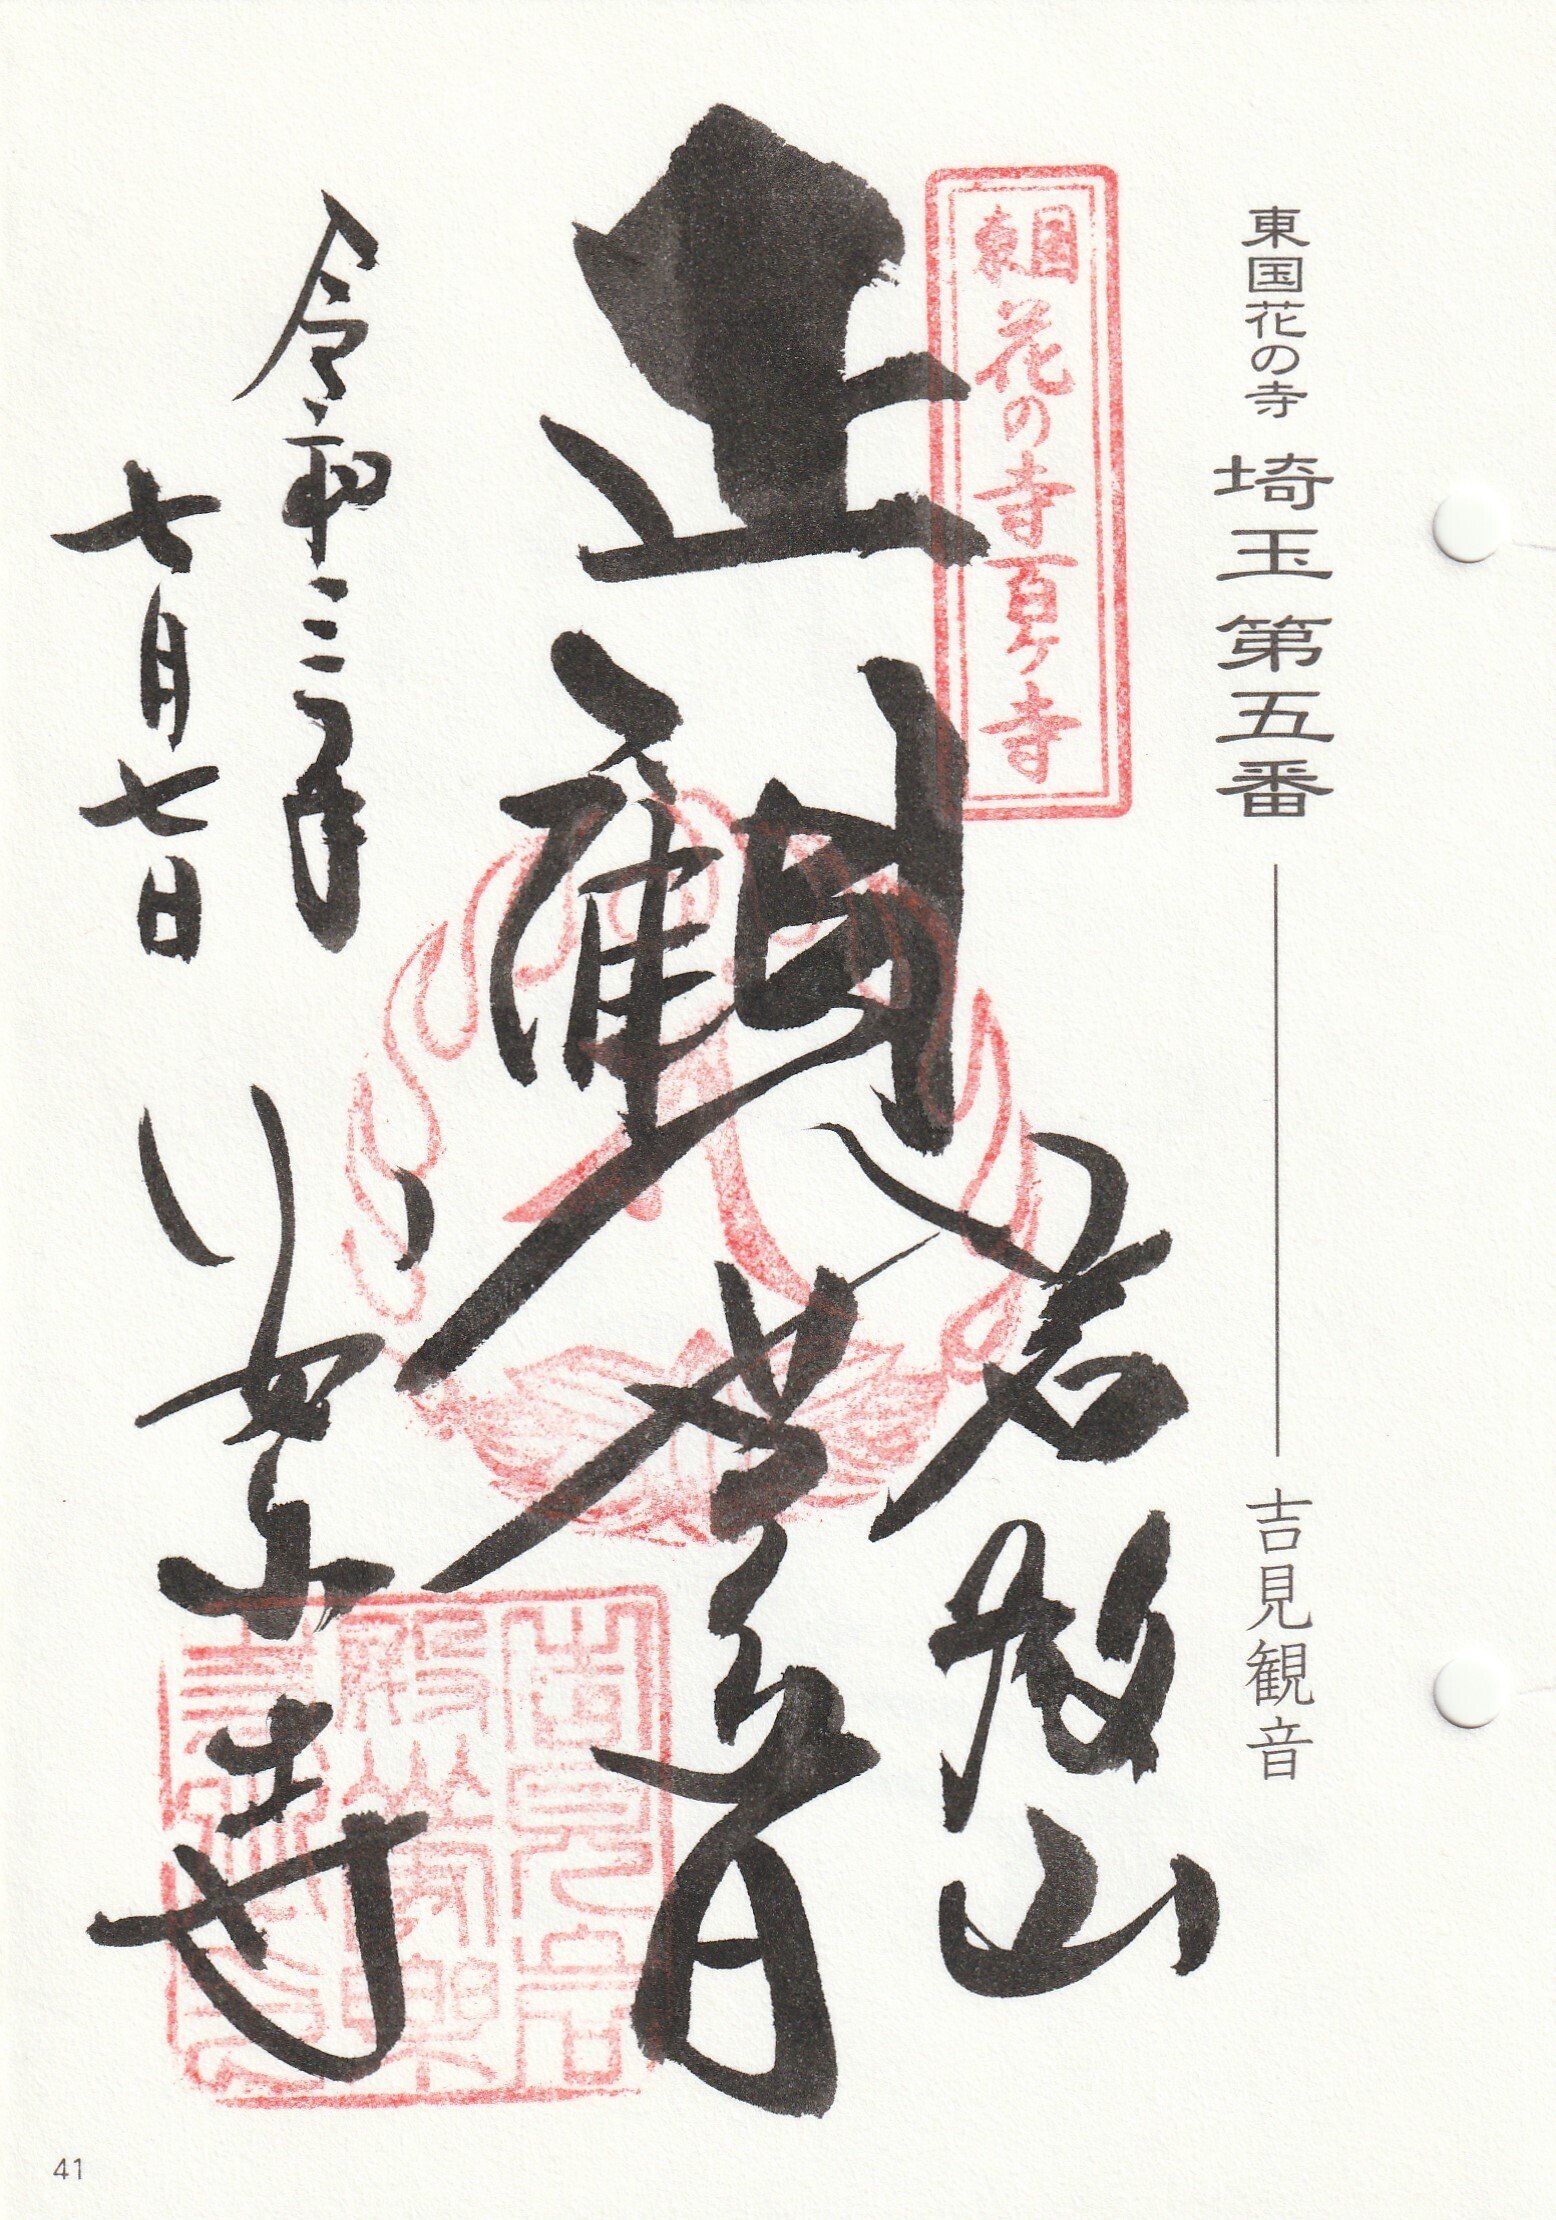 東国花の寺 埼玉第五番 吉見観音
東国花の寺百ケ寺
岩殿山
正観世音
令和三年
七月七日
安楽寺
41